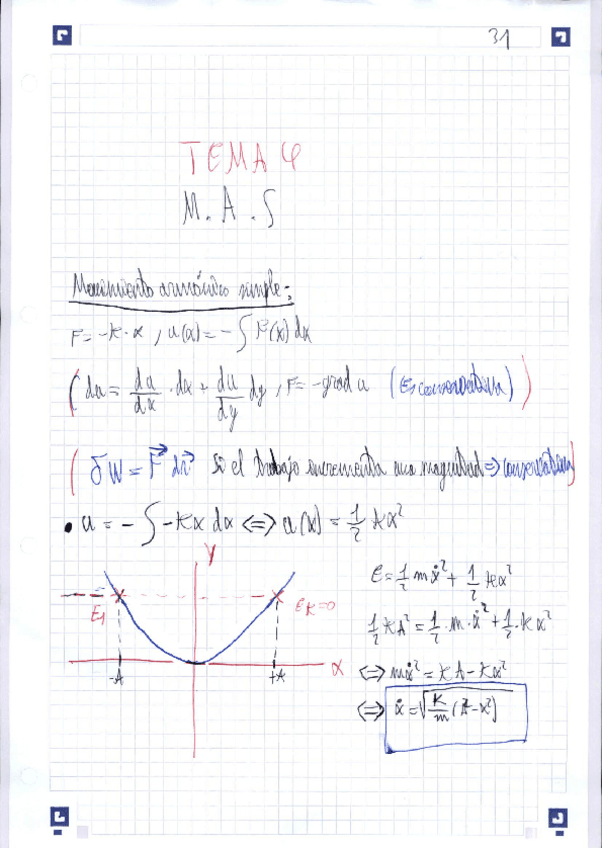 31
TEMA 4
M.A.S
Movimiento armónico simple:
F=-K·x, u(x)=-∫F(x)dx
(du = du/dx · dx + du/dy dy, F=-grad u (Es conservativa))
(δW = F⃗ dr⃗ Si el trabajo incrementa una magnitud ⇒ conservativa)
• u = -∫-Kx dx ⇔ u(x) = 1/2 kx²
y
E₁
E_K=0
-A
+A
x
E = 1/2 mẋ² + 1/2 kx²
1/2 KA² = 1/2·m·ẋ² + 1/2·kx²
⇔ mẋ² = KA - Kx²
⇔ ẋ = √(K/m (A²-x²))